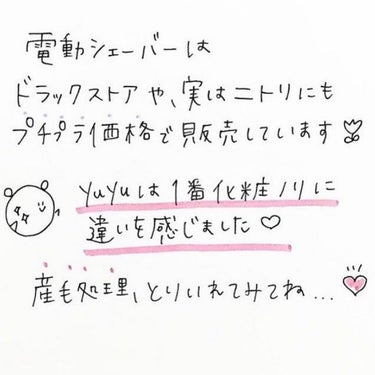 電動シェーバーは
ドラックストアや、実はニトリにも
プチプラ価格で販売しています
yuyuは1番化粧ノリに
違いを感じました♡
産毛処理、とりいれてみてね...